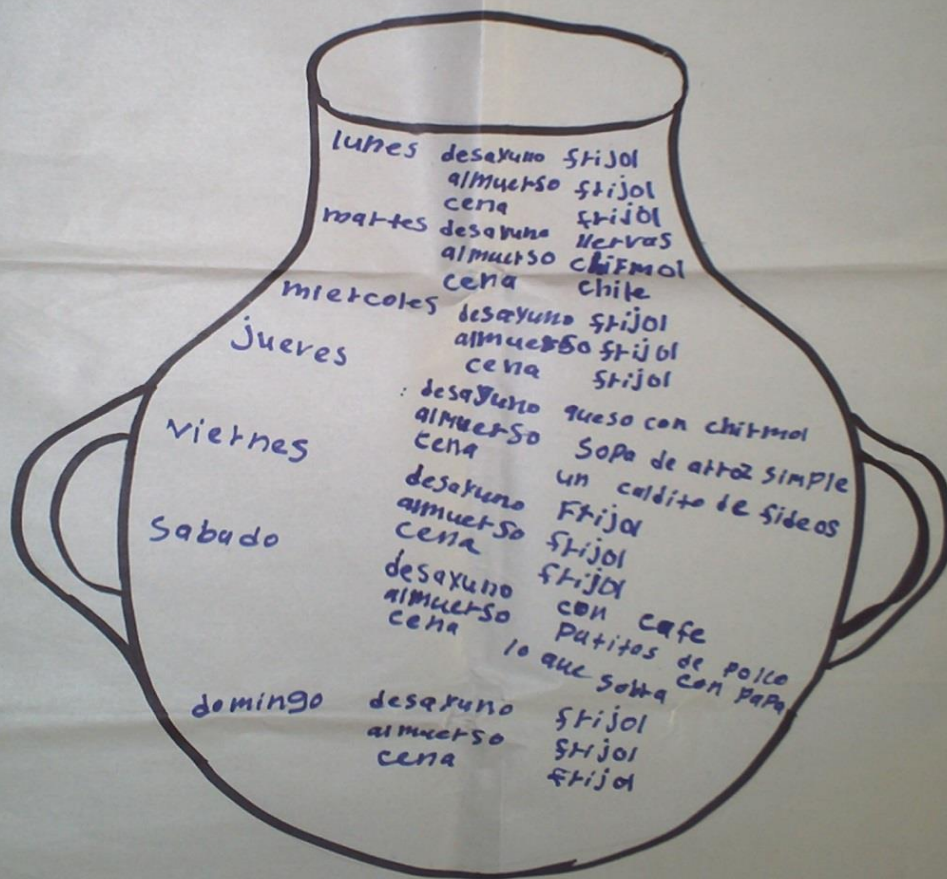 lunes desayuno frijol
almuerso frijol
cena frijol
martes desayuno Hervas
almuerso chirmol
cena chile
miercoles desayuno frijol
almuerso frijol
cena frijol
jueves desayuno queso con chirmol
almuerso sopa de arroz simple
cena un caldito de fideos
viernes desayuno Frijol
almuerso frijol
cena frijol
sabado desayuno con cafe
almuerso Patitos de pollo con papa
cena lo que sobra
domingo desayuno frijol
almuerso frijol
cena frijol